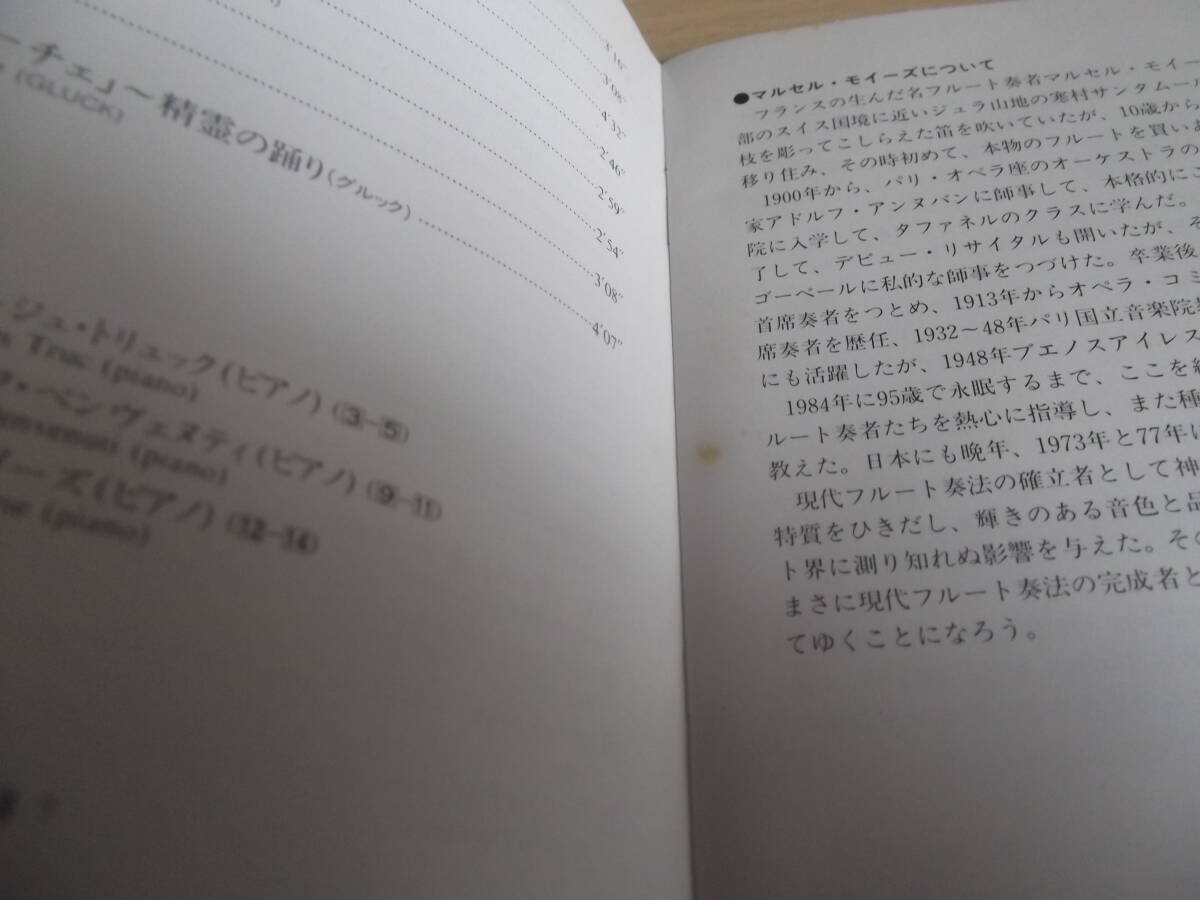 8'16"
3'08"
4'32"
2'46"
2'59"
2'54"
3'08"
ーチェ」〜精霊の踊り(グルック) 4'07"
(GLUCK)
ジュ・トリュック(ピアノ)(3-5)
Truc (piano)
ク・ベンヴェヌティ(ピアノ)(9-11)
(piano)
イーズ(ピアノ)(12-14)
(piano)
●マルセル・モイーズについて
フランスの生んだ名フルート奏者マルセル・モイー
部のスイス国境に近いジュラ山地の寒村サンタムー
枝を彫ってこしらえた笛を吹いていたが、10歳から
移り住み、その時初めて、本物のフルートを買いあ
1900年から、パリ・オペラ座のオーケストラの
家アドルフ・アンヌバンに師事して、本格的にこ
院に入学して、タファネルのクラスに学んだ。
了して、デビュー・リサイタルも開いたが、そ
ゴーベールに私的な師事をつづけた。卒業後、
首席奏者をつとめ、1913年からオペラ・コミ
席奏者を歴任、1932〜48年パリ国立音楽院教
にも活躍したが、1948年ブエノスアイレス
1984年に95歳で永眠するまで、ここを
ルート奏者たちを熱心に指導し、また種
教えた。日本にも晩年、1973年と77年に
現代フルート奏法の確立者として神
特質をひきだし、輝きのある音色と品
ト界に測り知れぬ影響を与えた。その
まさに現代フルート奏法の完成者と
てゆくことになろう。